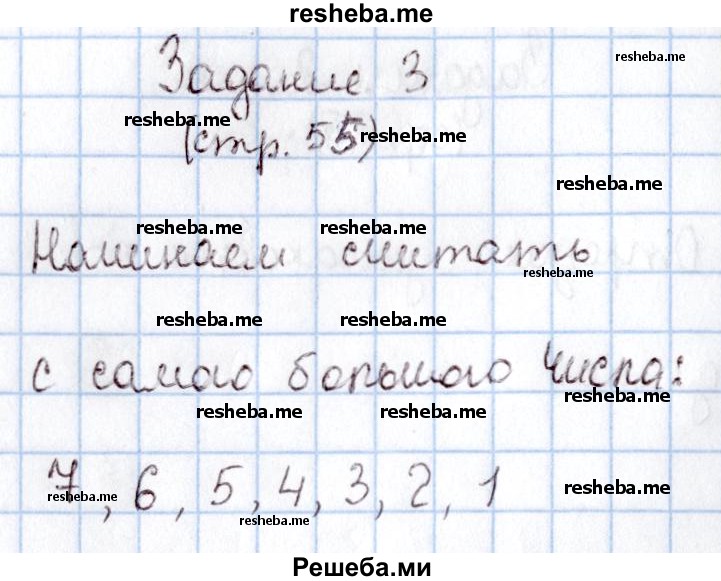 resheba.me
resheba.me
Задание 3
resheba.me
(стр. 55) resheba.me
resheba.me
resheba.me resheba.me
Начинаем считать
resheba.me
resheba.me resheba.me
с самого большого числа:
resheba.me
resheba.me resheba.me
7, 6, 5, 4, 3, 2, 1
resheba.me resheba.me
resheba.me
Решеба.ми